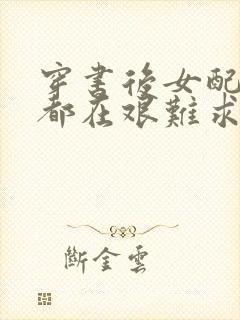 穿書後女配
都在艱難求
斷金雲